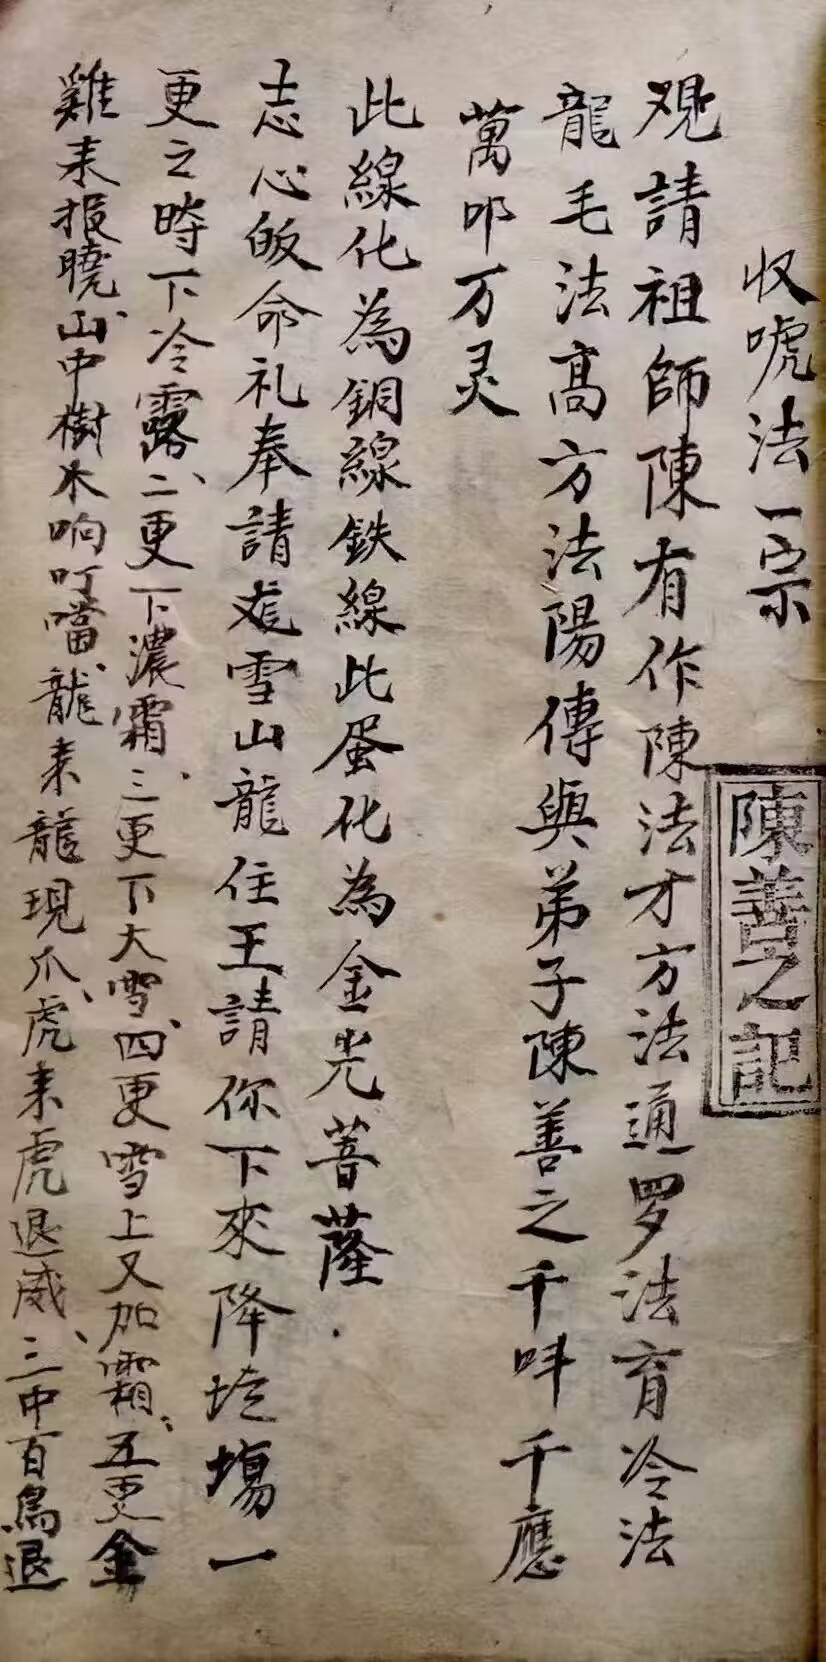 收唬法一宗
陳善之記
观請祖師陳有作陳法才方法通罗法育冷法
龍毛法高方法陽傳與弟子陳善之千呌千應
萬叩万灵
此線化為銅線鉄線此蛋化為金光菩薩
志心皈命礼奉請雪山龍住王請你下來降坛場一
更之時下冷露、二更下濃霜、三更下大雪、四更雪上又加霜、五更金
雞来报曉、山中樹木响叮噹、龍来龍現爪、虎来虎退威、三中百鳥退